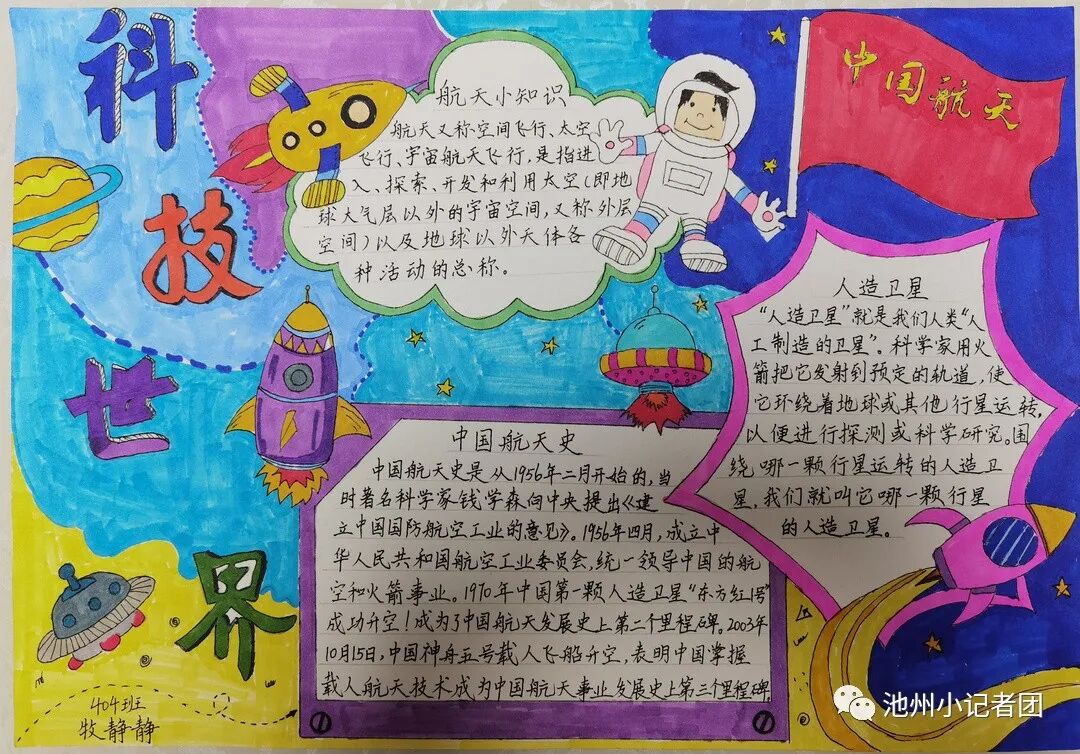 科
技
世
界
航天小知识
航天又称空间飞行、太空
飞行、宇宙航天飞行，是指进
入、探索、开发和利用太空（即地
球大气层以外的宇宙空间，又称外层
空间）以及地球以外天体各
种活动的总称。
中国航天
人造卫星
“人造卫星”就是我们人类“人
工制造的卫星”。科学家用火
箭把它发射到预定的轨道，使
它环绕着地球或其他行星运转，
以便进行探测或科学研究。围
绕哪一颗行星运转的人造卫
星，我们就叫它哪一颗行星
的人造卫星。
中国航天史
中国航天史是从1956年二月开始的，当
时著名科学家钱学森向中央提出《建
立中国国防航空工业的意见》。1956年四月，成立中
华人民共和国航空工业委员会，统一领导中国的航
空和火箭事业。1970年中国第一颗人造卫星“东方红1号”
成功升空！成为了中国航天发展史上第二个里程碑。2003年
10月15日，中国神舟五号载人飞船升空，表明中国掌握
载人航天技术成为中国航天事业发展史上第三个里程碑
404班
牧静静
池州小记者团